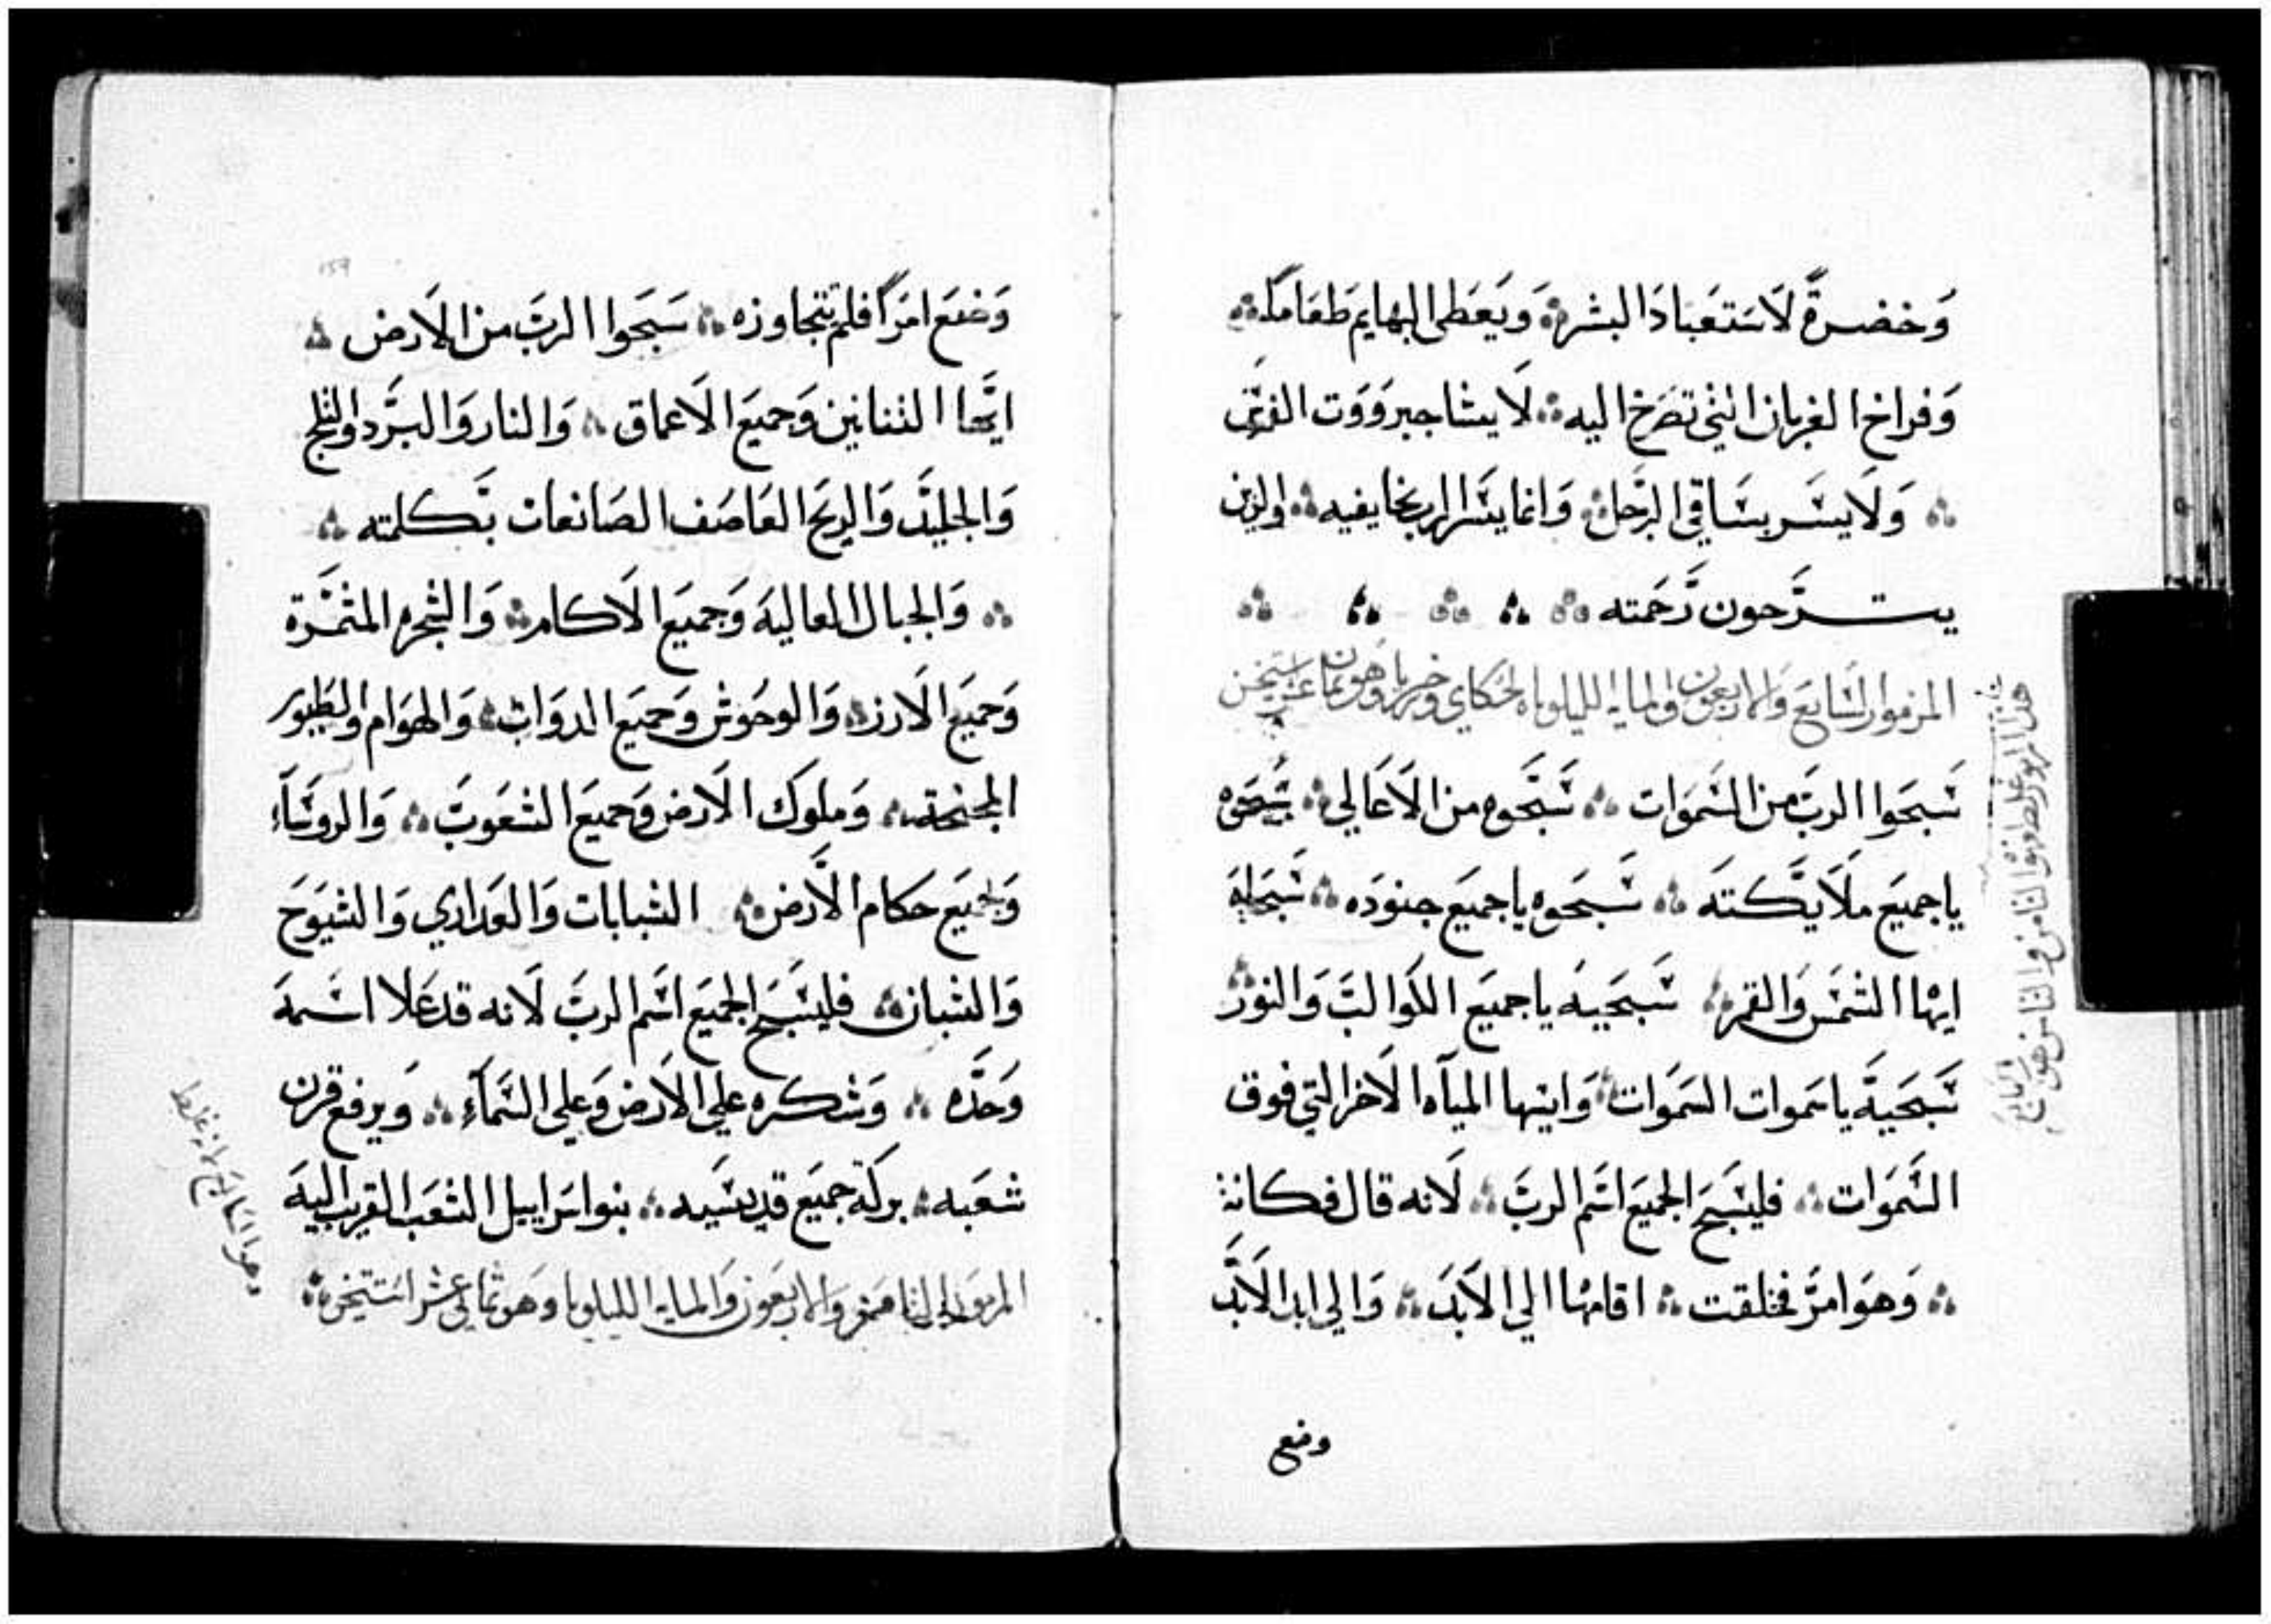 وَخضرةً لاَستعَبادَ البشر ۞ وَيَعَطى البهايم طعَامهاَ ۞
وَفراخ الغربان التي تصَرخ اليه ۞ لا يشا جبرووت الفرس
۞ وَلَا يسَر بسَاقي الرجَل ۞ وَانما يسَر الرب بخايفيه ۞ والذين
يترجون رَحَمته ۞ ۞ ۞ ۞ ۞
المزمور السَابع وَالاربعون والمايه الليلوياه لحكاي وزخريا وهو ثماني عشر استيخن
سَبحَوا الربَ من السَموَات ۞ سَبَحوه من الاَعَالي ۞ سبحَوه
ياجميَع ملاَيكتهَ ۞ سَبحَوه ياجميَع جنودَه ۞ سَبحَاه
ايها الشمسَ وَالقمر ۞ سَبحَيه ياجميع الكواكبَ وَالنور ۞
سَبحَيهَ ياسَموات السَموَات ۞ وَايتها المياَه الاَخر التي فوق
السَموَات ۞ فليسَبَح الجميَع اسَم الربَ ۞ لاَنه قال فكانت
۞ وَهوَ امرَ فخلقت ۞ اقامها الي الاَبدَ ۞ وَالي ابد الاَبدَ
وضع
هذا المزمور غلط لانه هوا الثامن والثامن هو السابع
وَضَع امرَاً فلم تتجاوزه ۞ سَبَحَوا الربَ من الاَرض ۞
ايتَها التنانين وَجميَع الاَعماق ۞ وَالنار وَالبرَد والثلج
وَالجليَد وَالريَح العَاصَف الصَانعات بَكلمته ۞
۞ وَالجبال العاليهَ وَجميَع الاَكام ۞ وَالشجره المثمَرة
وَجميَع الاَرز ۞ وَالوحَوش وَجميَع الدوَاب ۞ وَالهوَام والطيور
المجنحة ۞ وَملوَك الاَرض وَجميَع الشعَوبَ ۞ وَالروسَآء
وَجميَع حَكام الاَرض ۞ الشبابات وَالعَداري وَالشيوَخ
وَالشبان ۞ فليسَبَح الجميَع اسَم الربَ لاَنه قد عَلا اسَمهَ
وَحَدَه ۞ وَشكره علي الاَرض وَعلي السَمآَءِ ۞ وَيرفع قرن
شعَبه ۞ بركة جميَع قديسَيه ۞ بنو اسَراييل الشعَب القريب اليهَ
المزمور الثامن وَالاربَعون وَالمايه الليلويا وهَو ثماني عشر استيخن ۞
وهوا السابع لانه غلط